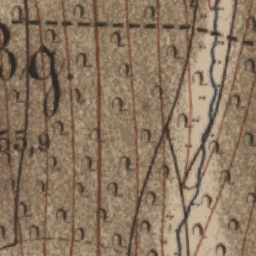 Bg.
55,9